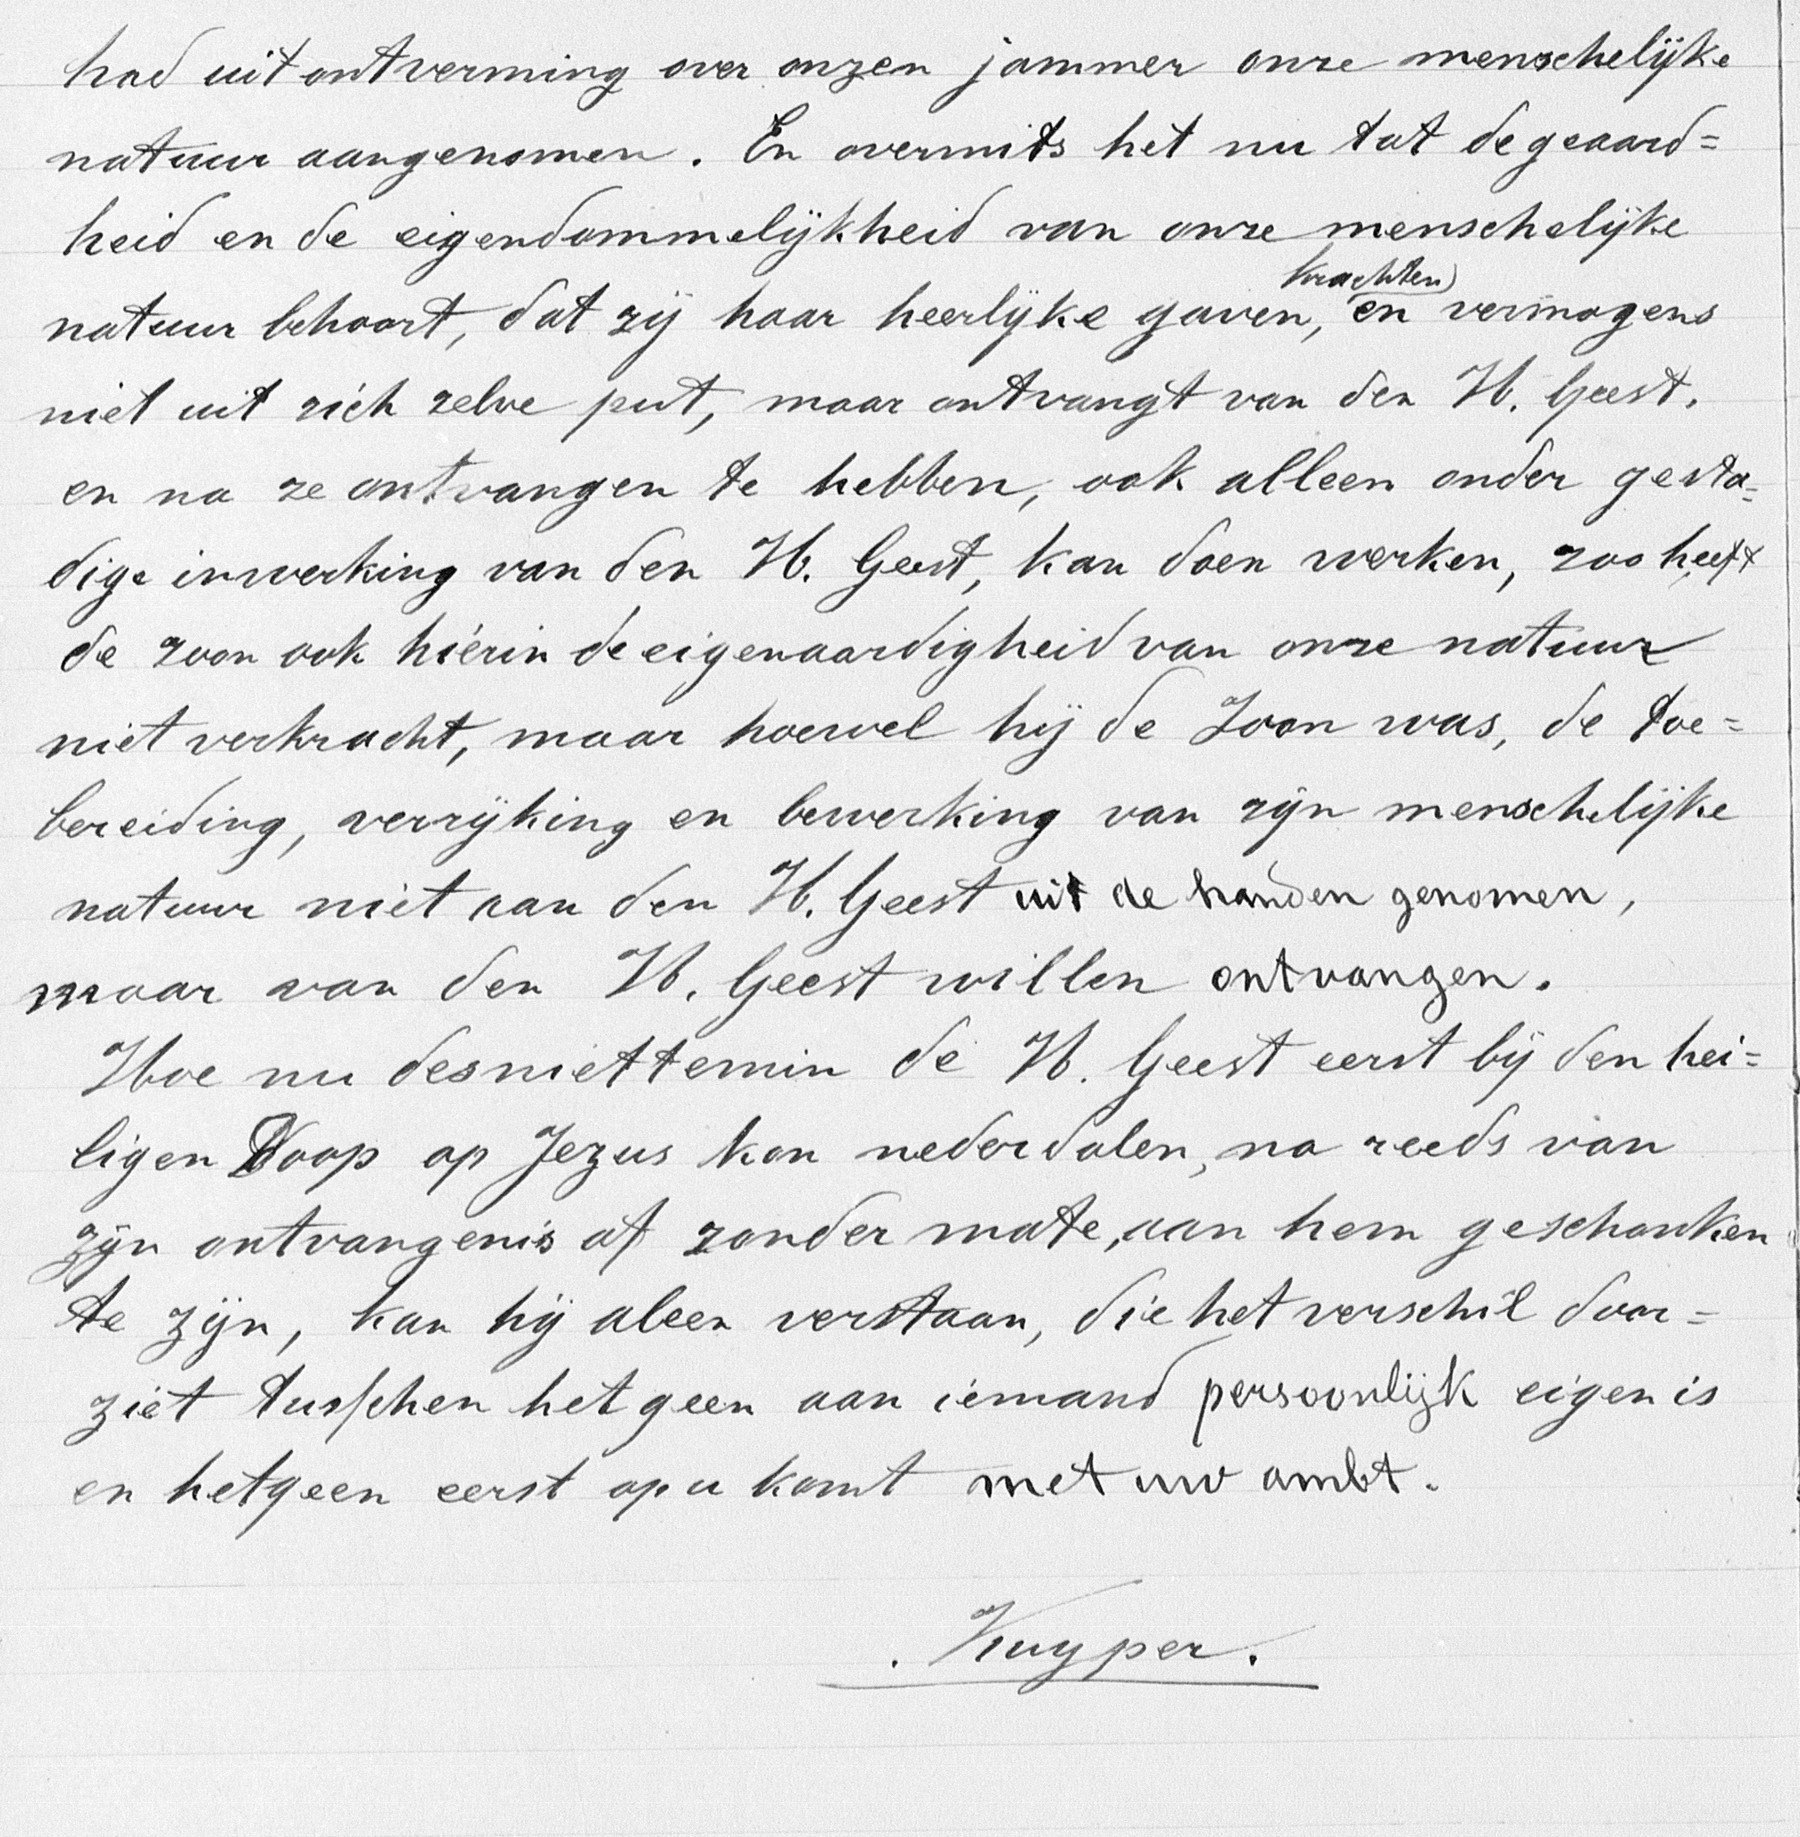 had uit ontverming over onzen jammer onze menschelijke
natuur aangenomen. En overmits het nu tot de geaard=
heid en de eigendommelijkheid van onze menschelijke
krachten
natuur behoort, dat zij haar heerlijke gaven, en vermogens
niet uit zich zelve put, maar ontvangt van den H. Geest.
en na ze ontvangen te hebben, ook alleen onder gesta=
dige inwerking van den H. Geest, kan doen werken, zoo heeft
de zoon ook hierin de eigenaardigheid van onze natuur
niet verkracht, maar hoewel hij de Zoon was, de toe=
bereiding, verrijking en bewerking van zijn menschelijke
natuur niet aan den H. Geest uit de handen genomen,
maar van den H. Geest willen ontvangen.
Hoe nu desniettemin de H. Geest eerst bij den hei=
ligen Doop op Jezus kon nederdalen, na reeds van
zijn ontvangenis af zonder mate, aan hem geschonken
te zijn, kan hij aleen verstaan, die het verschil door=
ziet tusschen hetgeen aan iemand persoonlijk eigen is
en hetgeen eerst op u komt met uw ambt.
. Kuyper.